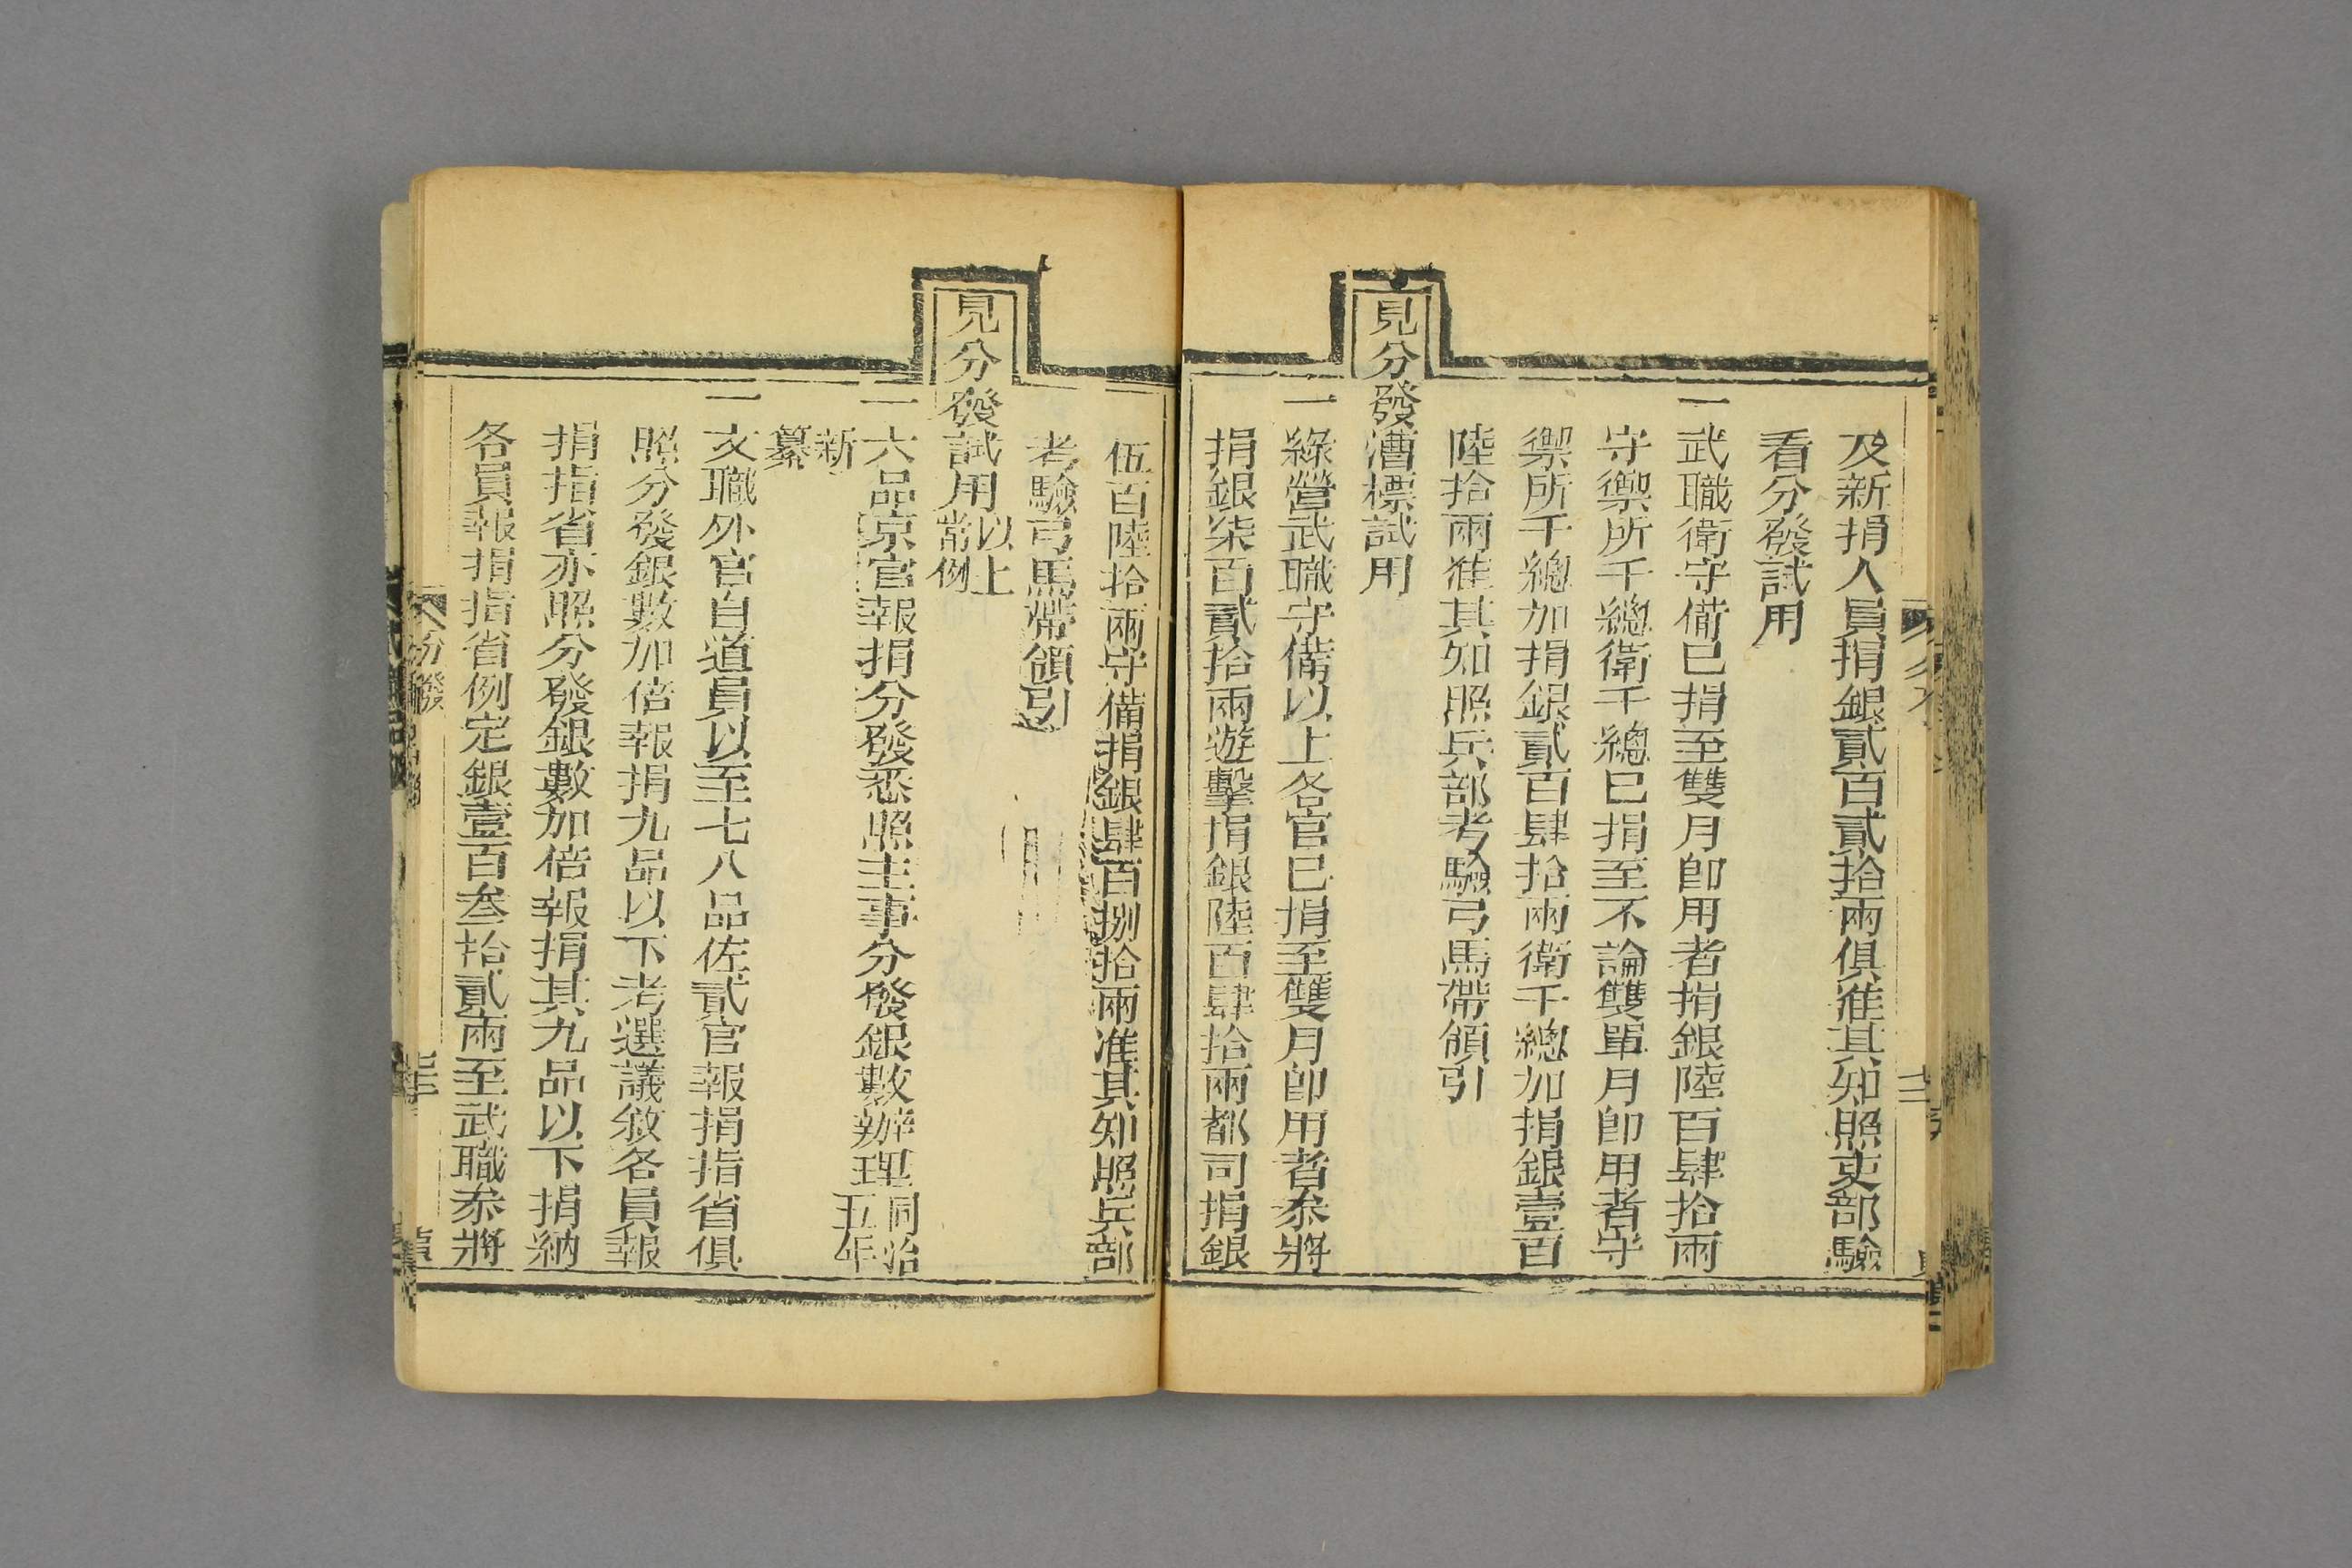 及新捐人員捐銀貳百貳拾兩俱准其知照吏部驗
看分發試用
一武職衛守備已捐至雙月卽用者捐銀陸百肆拾兩
守禦所千總衛千總已捐至不論雙單月卽用者守
禦所千總加捐銀貳百肆拾兩衛千總加捐銀壹百
陸拾兩准其知照兵部考驗弓馬帶領引
見分發漕標試用
一綠營武職守備以上各官已捐至雙月卽用者叅將
捐銀柒百貳拾兩遊擊捐銀陸百肆拾兩都司捐銀
伍百陸拾兩守備捐銀肆百捌拾兩准其知照兵部
考驗弓馬帶領引
見分發試用以上常例
一六品京官報捐分發悉照主事分發銀數辦理同治五年
新纂
一文職外官自道員以至七八品佐貳官報捐指省俱
照分發銀數加倍報捐九品以下考選議敘各員報
捐指省亦照分發銀數加倍報捐其九品以下捐納
各員報捐指省例定銀壹百叁拾貳兩至武職叅將
分發